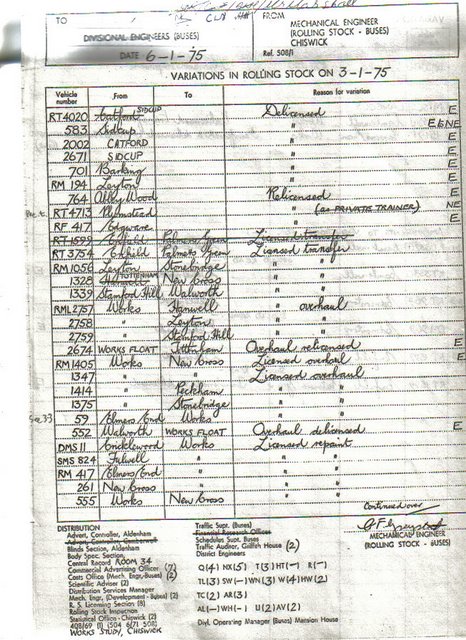 TO
FROM
DIVISIONAL ENGINEERS (BUSES)
MECHANICAL ENGINEER
(ROLLING STOCK - BUSES)
CHISWICK
DATE 6-1-75
Ref. 508/1
VARIATIONS IN ROLLING STOCK ON 3-1-75
Vehicle number From To Reason for variation
RT4020 Catford SIDCUP Delicensed E
583 Sidcup " E&NE
2002 CATFORD " E
2671 SIDCUP " E
701 Barking " E
RM 194 Leyton " E
764 Abbey Wood Relicensed E
RT4713 Plumstead " (as PRIVATE TRAINER) NE
RF 417 Edgware " E
RT 1599 Enfield Palmers Green Licensed transfer
RT 3754 Enfield Palmers Green Licensed transfer
RM1056 Leyton Stonebridge "
1328 TOTTENHAM New Cross "
1339 Stamford Hill Walworth "
RML2757 Works Hanwell " overhaul
2758 " Leyton " "
2759 " Stamford Hill " "
2674 WORKS FLOAT Tottenham Overhaul relicensed E
RM1405 Works New Cross Licensed overhaul E
1347 " " Licensed overhaul
1414 " Peckham " "
1375 " Stonebridge " "
59 Elmers End Works " "
552 Walworth WORKS FLOAT Overhaul delicensed E
DMS 11 Cricklewood Works Licensed repaint
SMS 824 Fulwell " " "
RM 417 Elmers End " " "
261 New Cross " " "
555 Works New Cross " "
Continued over
DISTRIBUTION
Advert. Controller, Aldenham
Blinds Section, Aldenham
Body Spec. Section,
Central Record ROOM 34
Commercial Advertising Officer (7)
Costs Office (Mech. Engr-Buses) (2)
Scientific Adviser (2)
Distribution Services Manager
Mech. Engr. (Development - Buses) (2)
R. S. Licensing Section (8)
Rolling Stock Inspection
Statistical Office - Chiswick (2)
408/69 (1) 504 (6/71 508)
WORKS STUDY, CHISWICK
Traffic Supt. (Buses)
Financial Research Officer
Schedules Supt. Buses
Traffic Auditor, Griffith House (2)
District Engineers
Q(4) NX(5) T(3) HT(-) R(-)
TL(3) SW(-) WN(3) W(4) HW(2)
TC(2) AR(3)
AL(-) WH(-) U(2) AV(2)
Divl. Operating Manager (Buses) Mansion House
MECHANICAL ENGINEER
(ROLLING STOCK - BUSES)